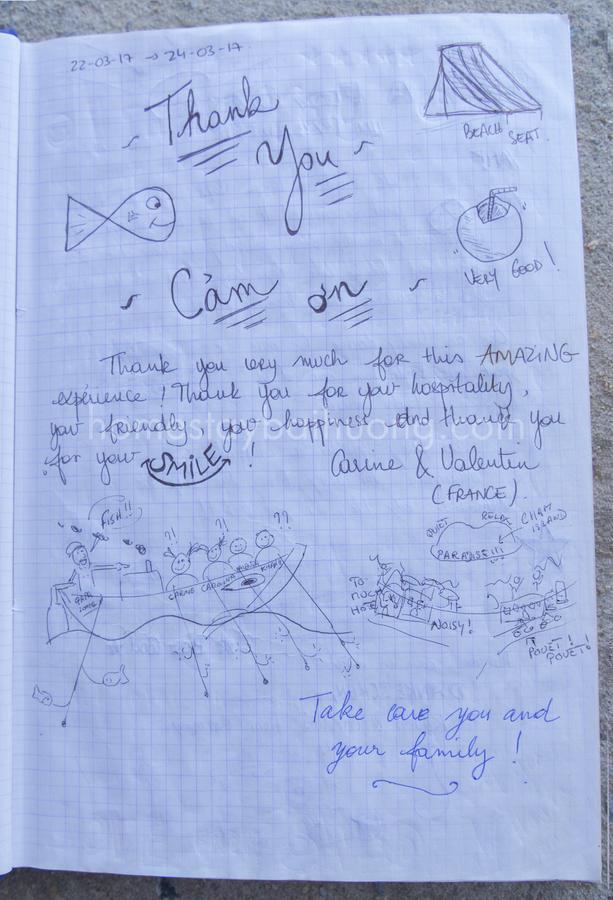 22-03-17 → 24-03-17
Thank
You
BEACH SEAT.
VERY GOOD!
Cảm ơn
Thank you very much for this AMAZING
expérience! Thank you for your hospitality,
your friendly, your happiness And thank you
for your SMILE! Carine & Valentin
(FRANCE).
homestaybaihuong.com
FISH!!
?!
??
?!
??
CARINE CAROLINA
QUIET RELAX CHAM
ISLAND
PARADISE!!!
TO
MUCH
HOTEL
NOISY!
POUËT!
POUËT!
Take care you and
your family!